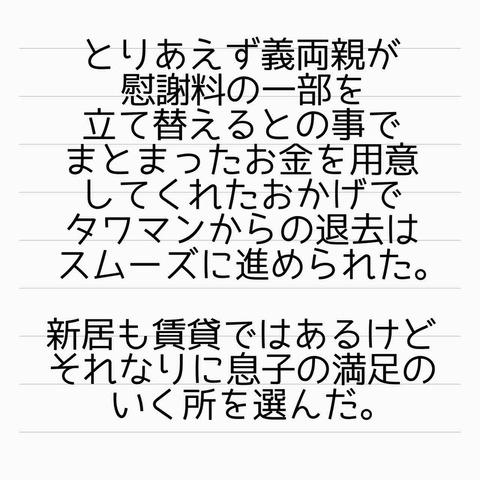 とりあえず義両親が
慰謝料の一部を
立て替えるとの事で
まとまったお金を用意
してくれたおかげで
タワマンからの退去は
スムーズに進められた。
新居も賃貸ではあるけど
それなりに息子の満足の
いく所を選んだ。